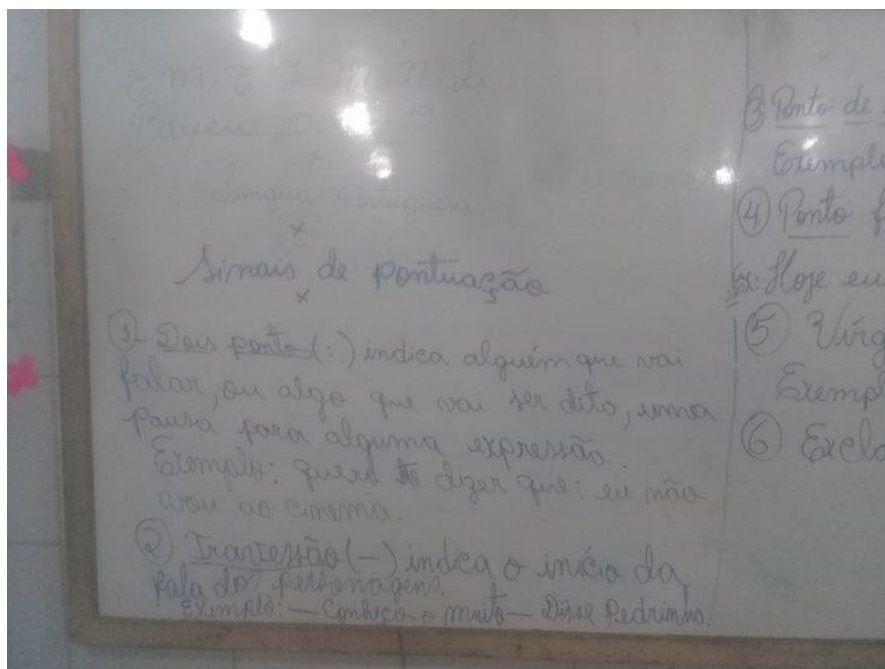 E. M. E I. M. N. L
Língua Portuguesa
Sinais de pontuação
1- Dois pontos (:) indica alguém que vai
falar, ou algo que vai ser dito, uma
pausa para alguma expressão.
Exemplo: quero te dizer que: eu não
vou ao cinema.
2 Travessão (—) indica o início da
fala do personagem.
Exemplo: — Conheço-o muito — Disse Pedrinho.
3 Ponto de
Exempl
4 Ponto f
Ex: Hoje eu
5 Vírg
Exempl
6 Excla